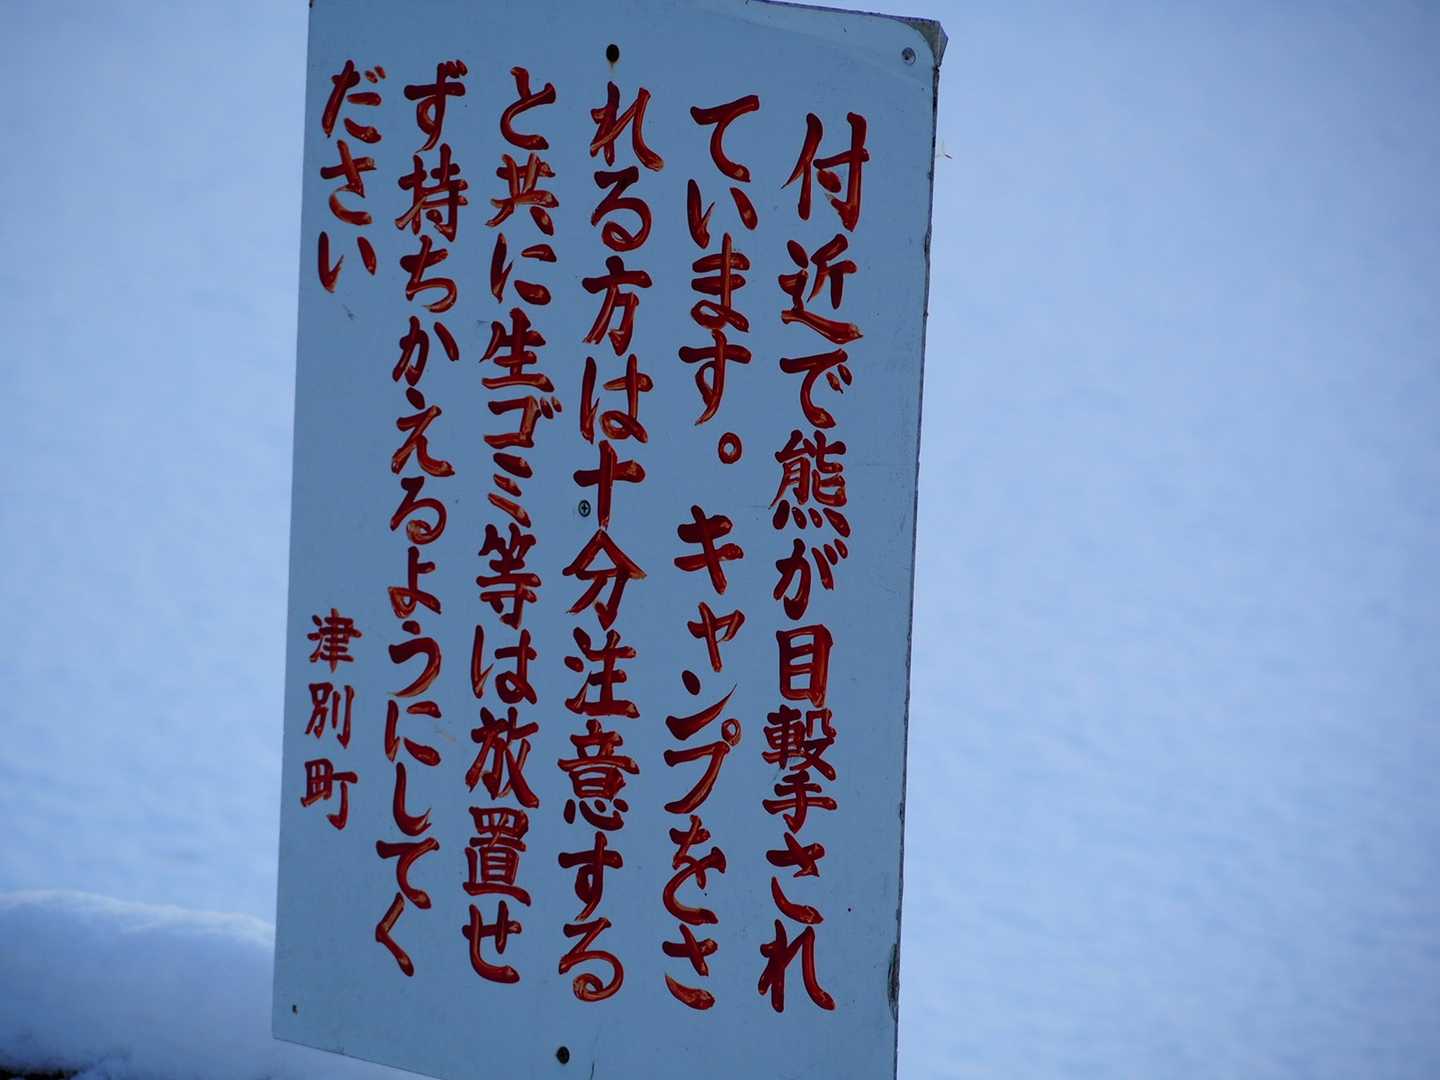 付近で熊が目撃され
ています。キャンプをさ
れる方は十分注意する
と共に生ゴミ等は放置せ
ず持ちかえるようにしてく
ださい
津別町